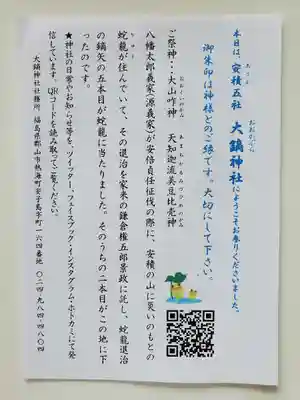 本日は、安積五社 大鏑神社にようこそお参りくださいました。
御朱印は神様とのご縁です。大切にして下さい。
ご祭神・・大山咋神 天知迦流美豆比売神
八幡太郎義家(源義家)が安倍貞任征伐の際に、安積の山に災いのもとの
蛇龍が住んでいて、その退治を家来の鎌倉権五郎景政に託し、蛇龍退治
の鏑矢の五本目が蛇龍に当たりました。そのうちの二本目がこの地に下
ったのです。
★神社の日常やお知らせ等を、ツイッター・フェースブック・インスタグラム・ホトカミにて発
信しています。QRコードを読み取ってご覧ください。
大鏑神社社務所 福島県郡山市熱海町安子島字町一六四番地 〇二四・九八四・四八〇四